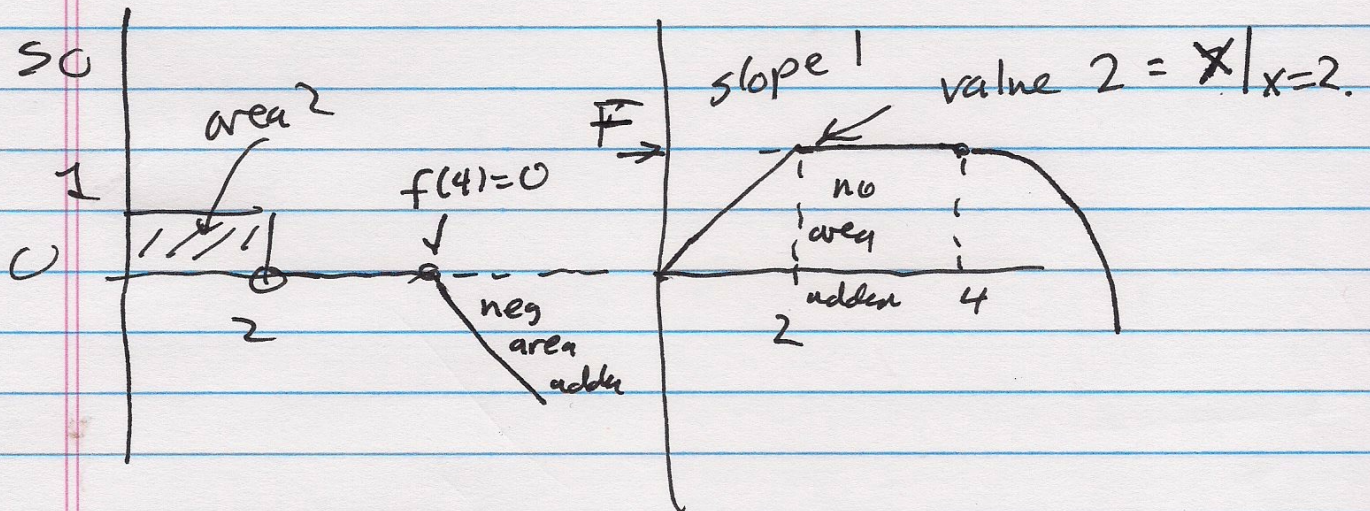 so
area 2
1
f(4)=0
0
2
neg
area
F
slope 1
value 2 = x|x=2.
no
area
added
2
4